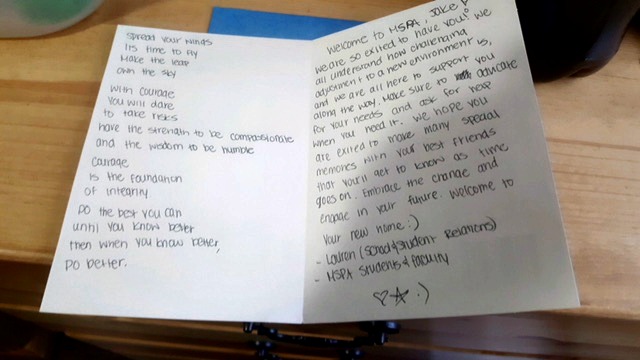 spread your wings
its time to fly
Make the leap
own the sky
with courage
You will dare
to take risks
have the strength to be compassionate
and the wisdom to be humble
Courage
is the foundation
of integrity
Do the best you can
until you know better
then when you know better,
Do better.
Welcome to HSPA, Jake ♡
we are so exited to have you! we
all understand how challenging
adjustment to a new environment is,
and we are all here to support you
along the way. Make sure to advocate
for your needs and ask for help
when you need it. we hope you
are exited to make many special
memories with your best friends
that you'll get to know as time
goes on. Embrace the change and
engage in your future. Welcome to
Your new home :)
- Lauren (School & Student Relations)
- HSPA Students & faculty
♡☆ :)